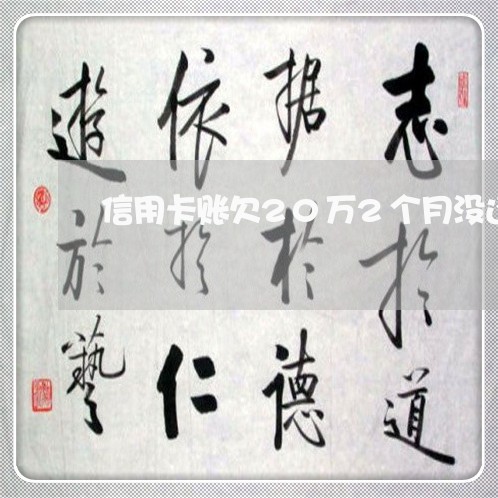 志於道
据於德
依於仁
遊於藝
信用卡账欠20万2个月没